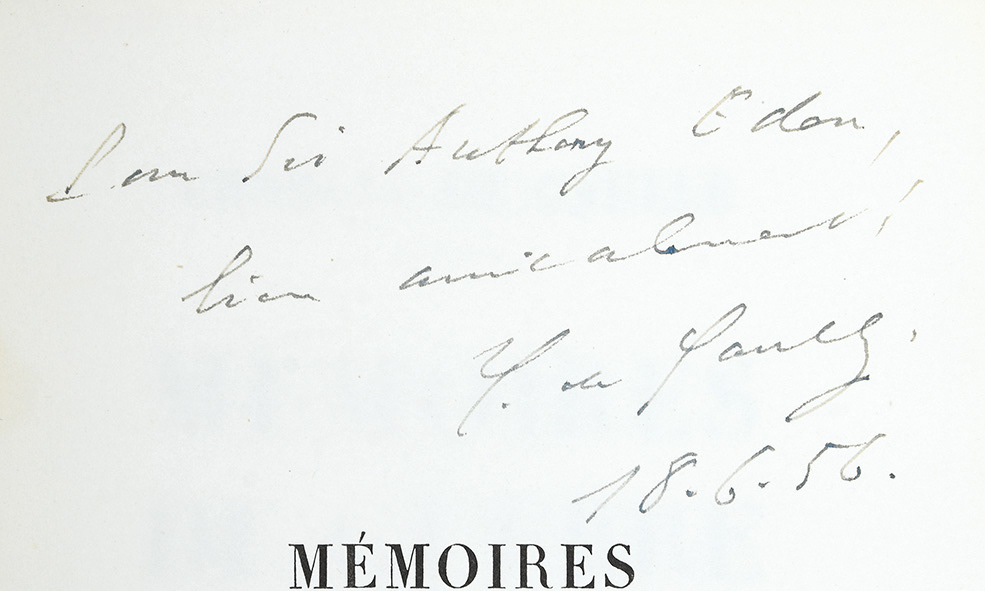 Pour Sir Anthony Eden,
bien amicalement!
C. de Gaulle.
18.6.56.
MÉMOIRES